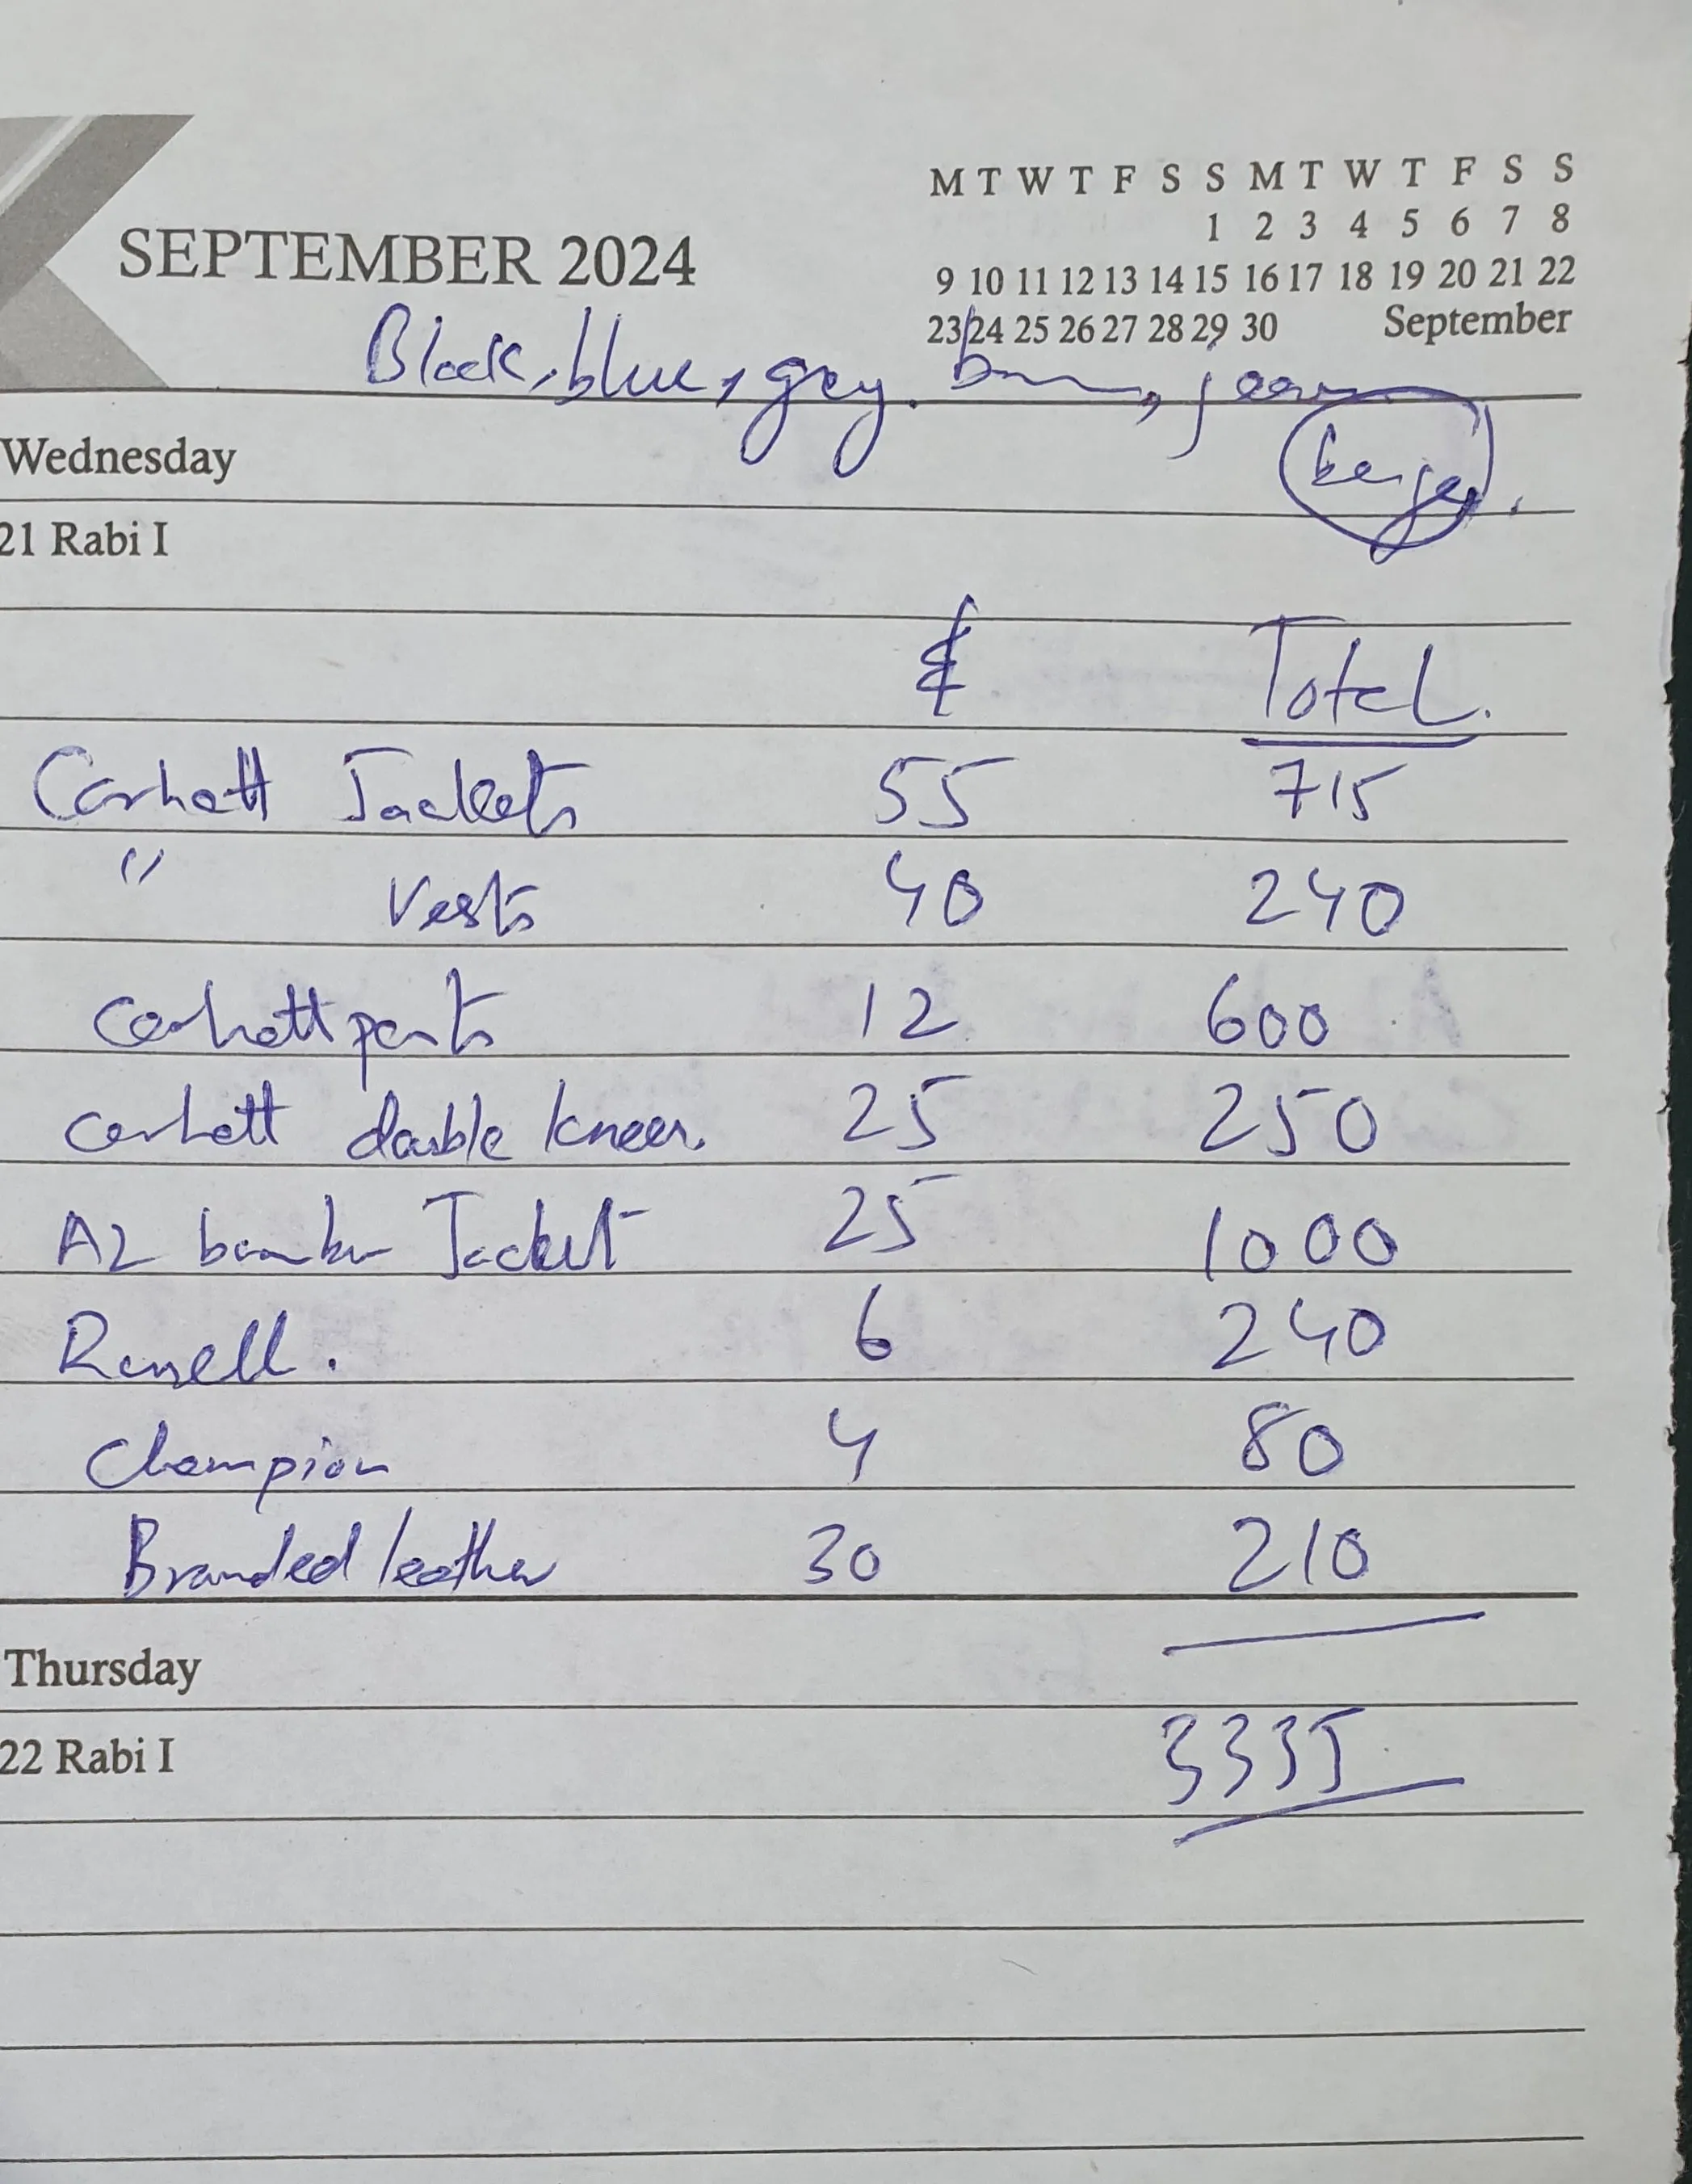 M T W T F S S M T W T F S S
1 2 3 4 5 6 7 8
SEPTEMBER 2024
9 10 11 12 13 14 15 16 17 18 19 20 21 22
23 24 25 26 27 28 29 30 September
Black, blue, grey.
Wednesday
beige
21 Rabi I
Total.
Carhatt Jackets 55 715
" Vests 40 240
Carhatt pants 12 600
Carhatt double knees. 25 250
A2 Jacket 25 1000
Russell. 6 240
Champion 4 80
Branded leather 30 210
Thursday
3335
22 Rabi I